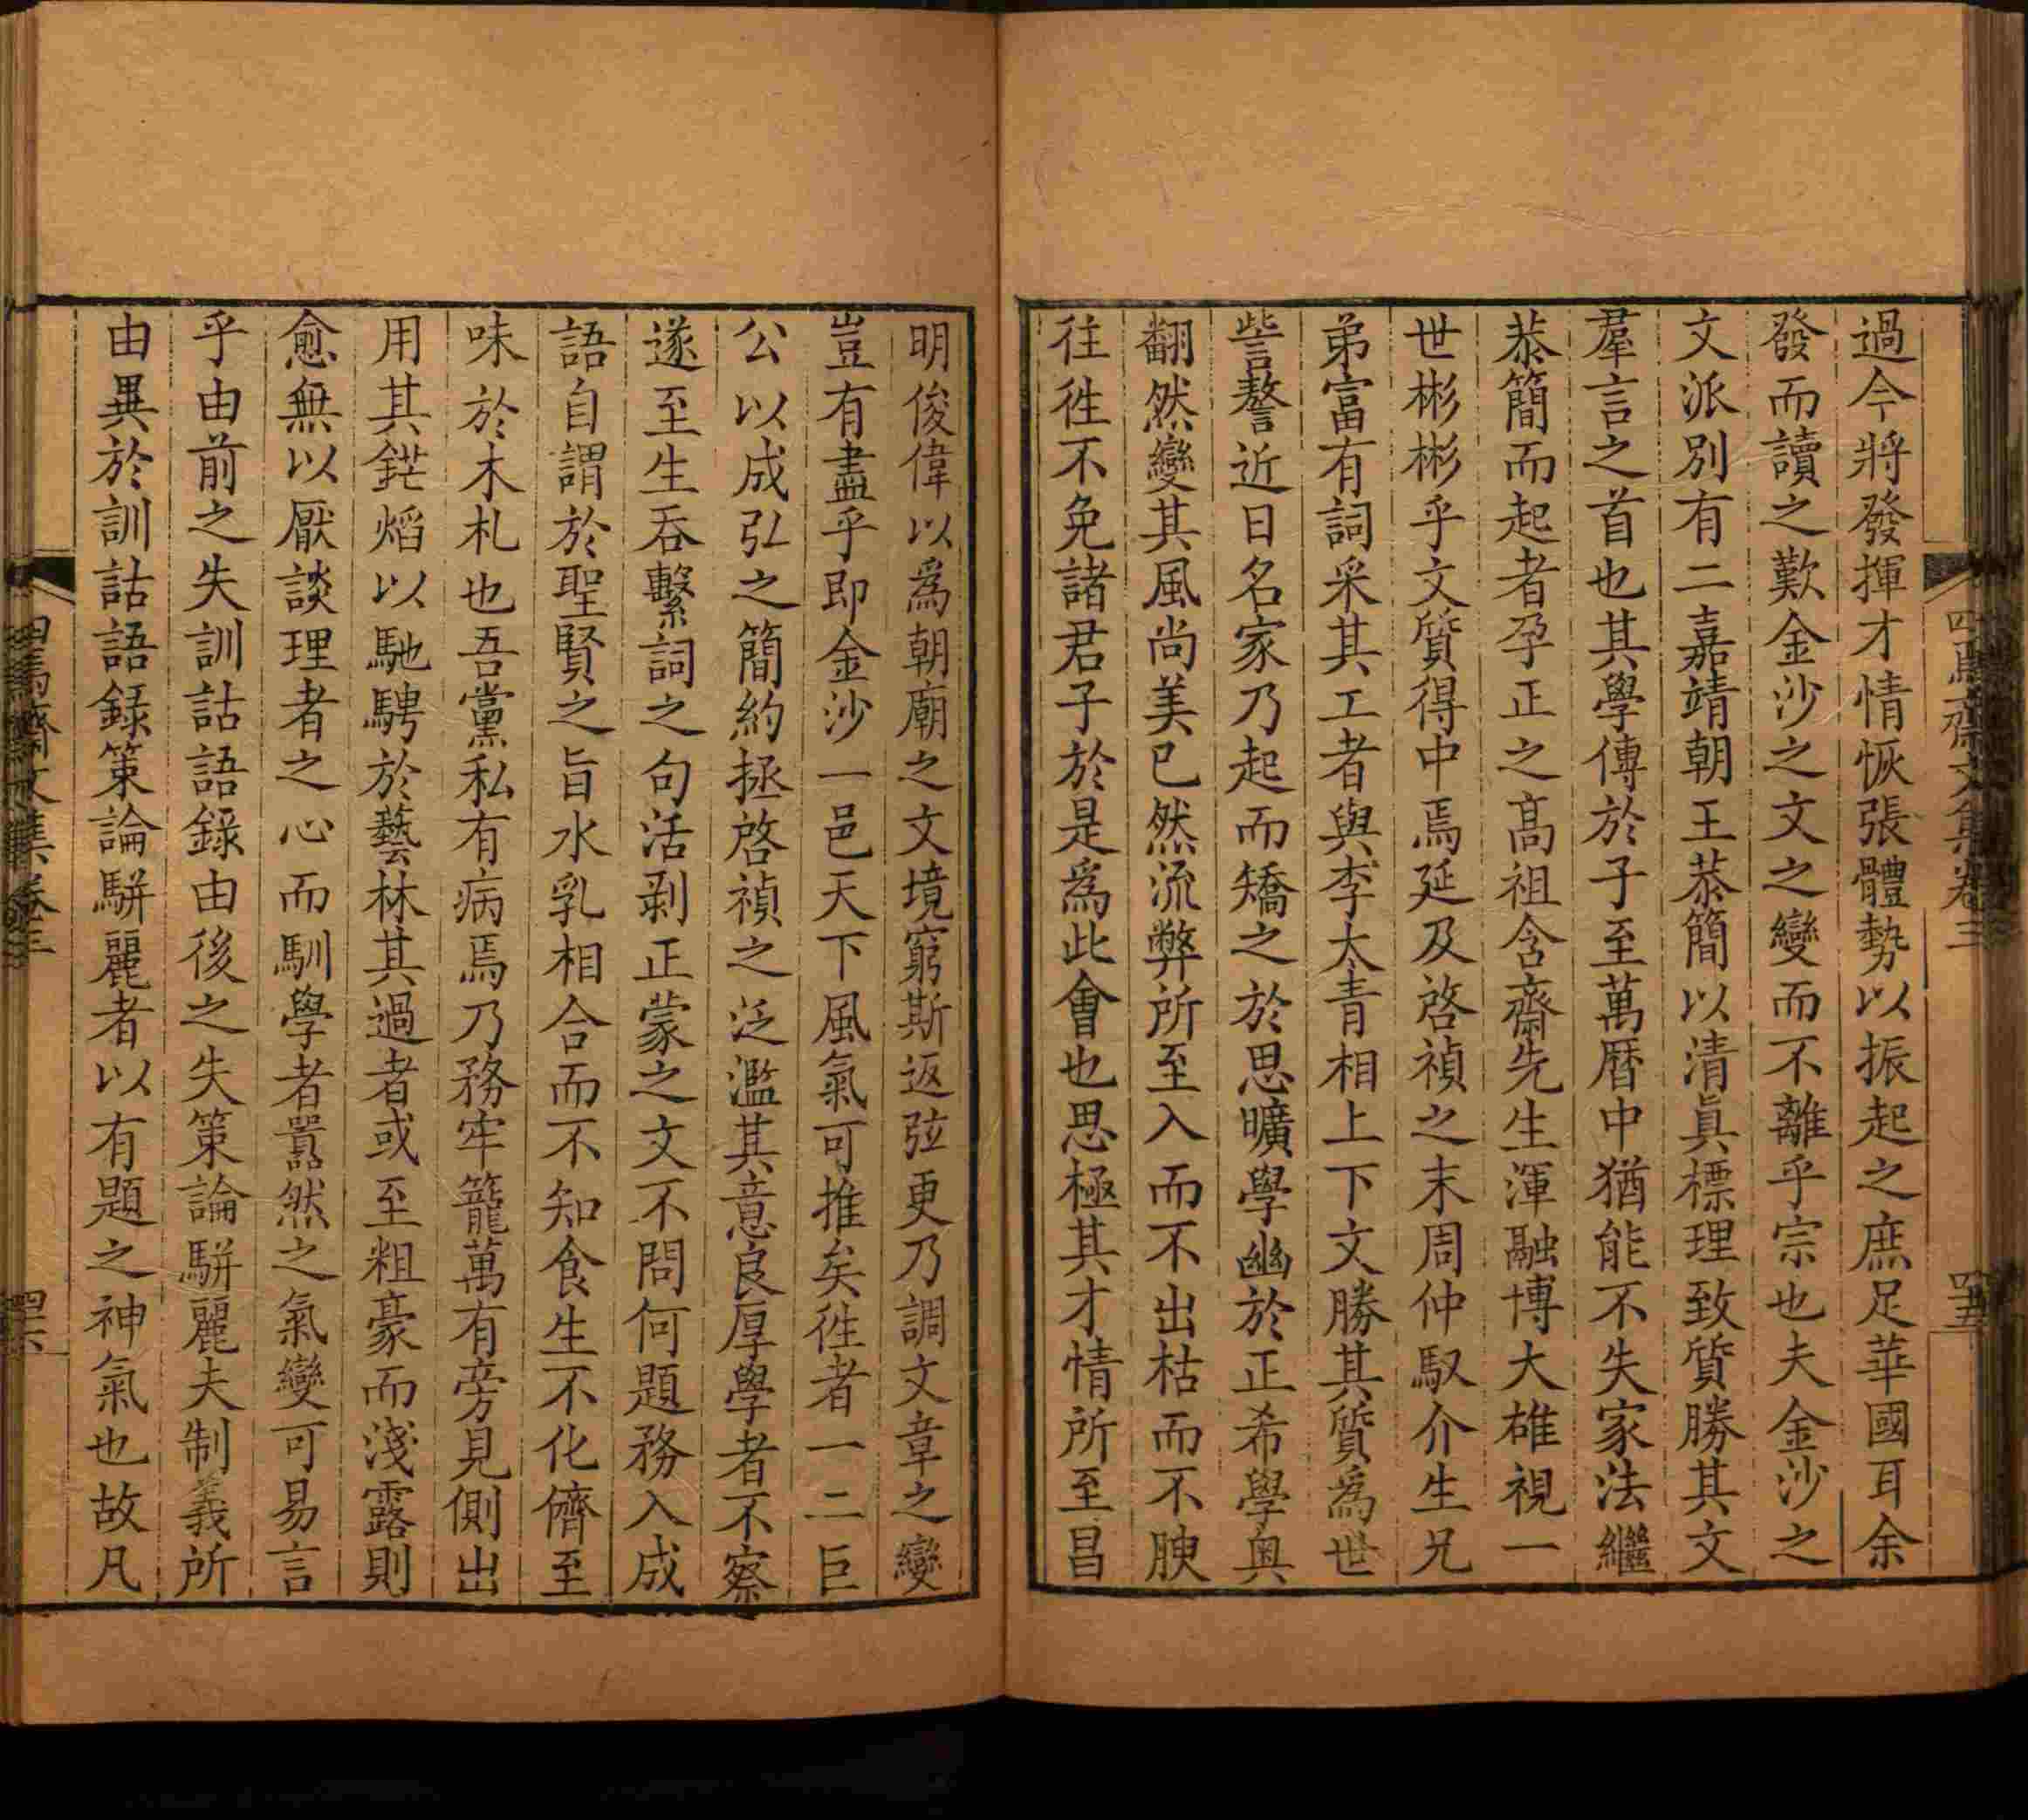 過今將發揮才情恢張體勢以振起之庶足華國耳余
發而讀之歎金沙之文之變而不離乎宗也夫金沙之
文派別有二嘉靖朝王恭簡以清眞標理致質勝其文
羣言之首也其學傳於子至萬曆中猶能不失家法繼
恭簡而起者孕正之高祖含齋先生渾融博大雄視一
世彬彬乎文質得中焉延及啓禎之末周仲馭介生兄
弟富有詞采其工者與李太青相上下文勝其質爲世
訾謷近日名家乃起而矯之於思曠學幽於正希學奥
翻然變其風尚美已然流弊所至入而不出枯而不腴
往徃不免諸君子於是爲此會也思極其才情所至昌
明俊偉以爲朝廟之文境窮斯返弦更乃調文章之變
豈有盡乎即金沙一邑天下風氣可推矣徃者一二巨
公以成弘之簡約拯啓禎之泛濫其意良厚學者不察
遂至生吞繫詞之句活剥正蒙之文不問何題務入成
語自謂於聖賢之旨水乳相合而不知食生不化儕至
味於木札也吾黨私有病焉乃務牢籠萬有旁見側出
用其鋩熖以馳騁於藝林其過者或至粗豪而淺露則
愈無以厭談理者之心而馴學者囂然之氣變可易言
乎由前之失訓詁語錄由後之失策論駢麗夫制義所
由異於訓詁語録策論駢麗者以有題之神氣也故凡
四焉齋文集卷三